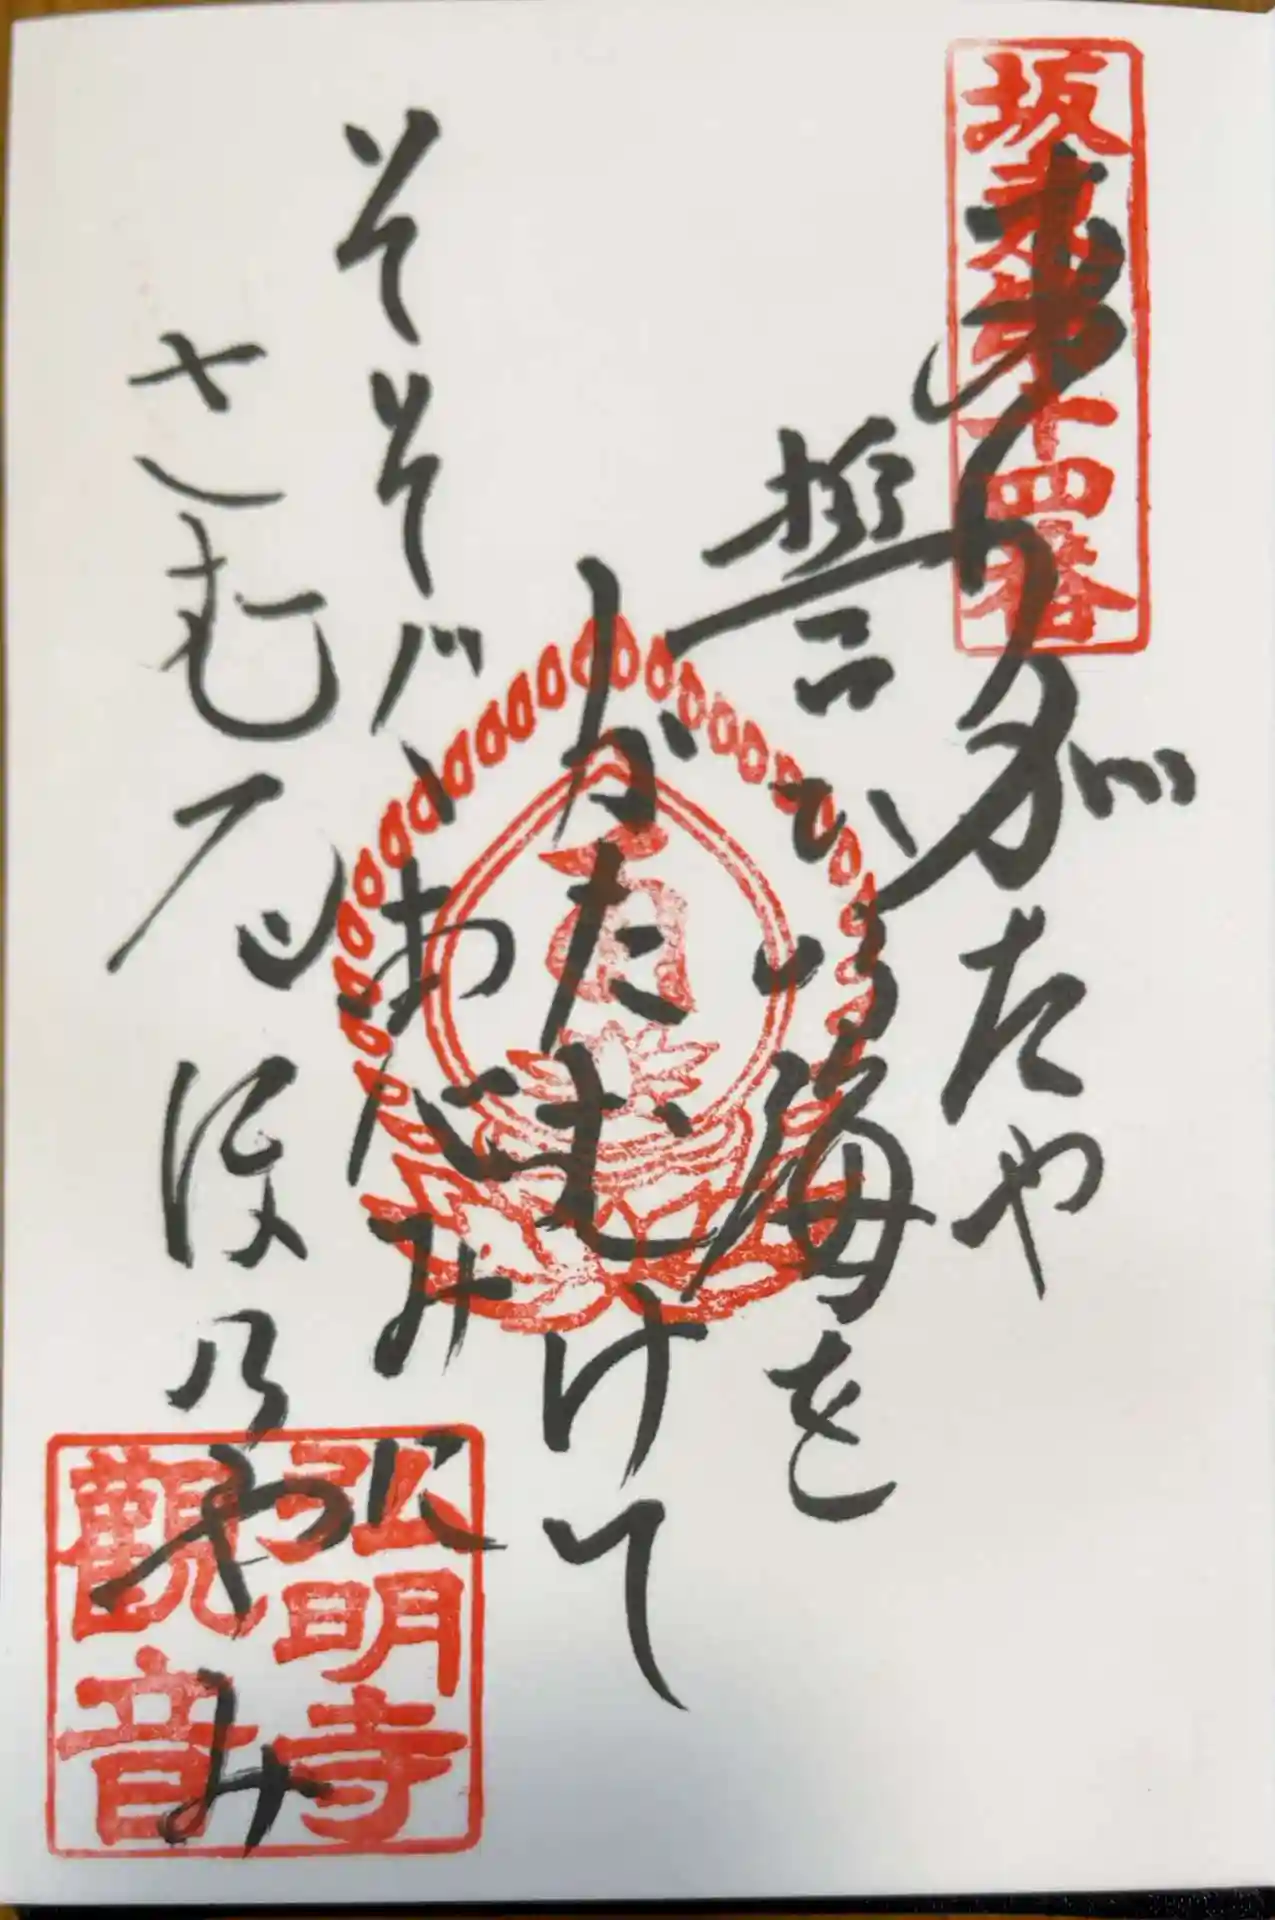 坂東第十四番
ありがたや
誓ひの海を
かたむけて
そそぐめぐみに
さむるほのやみ
弘明寺
觀音